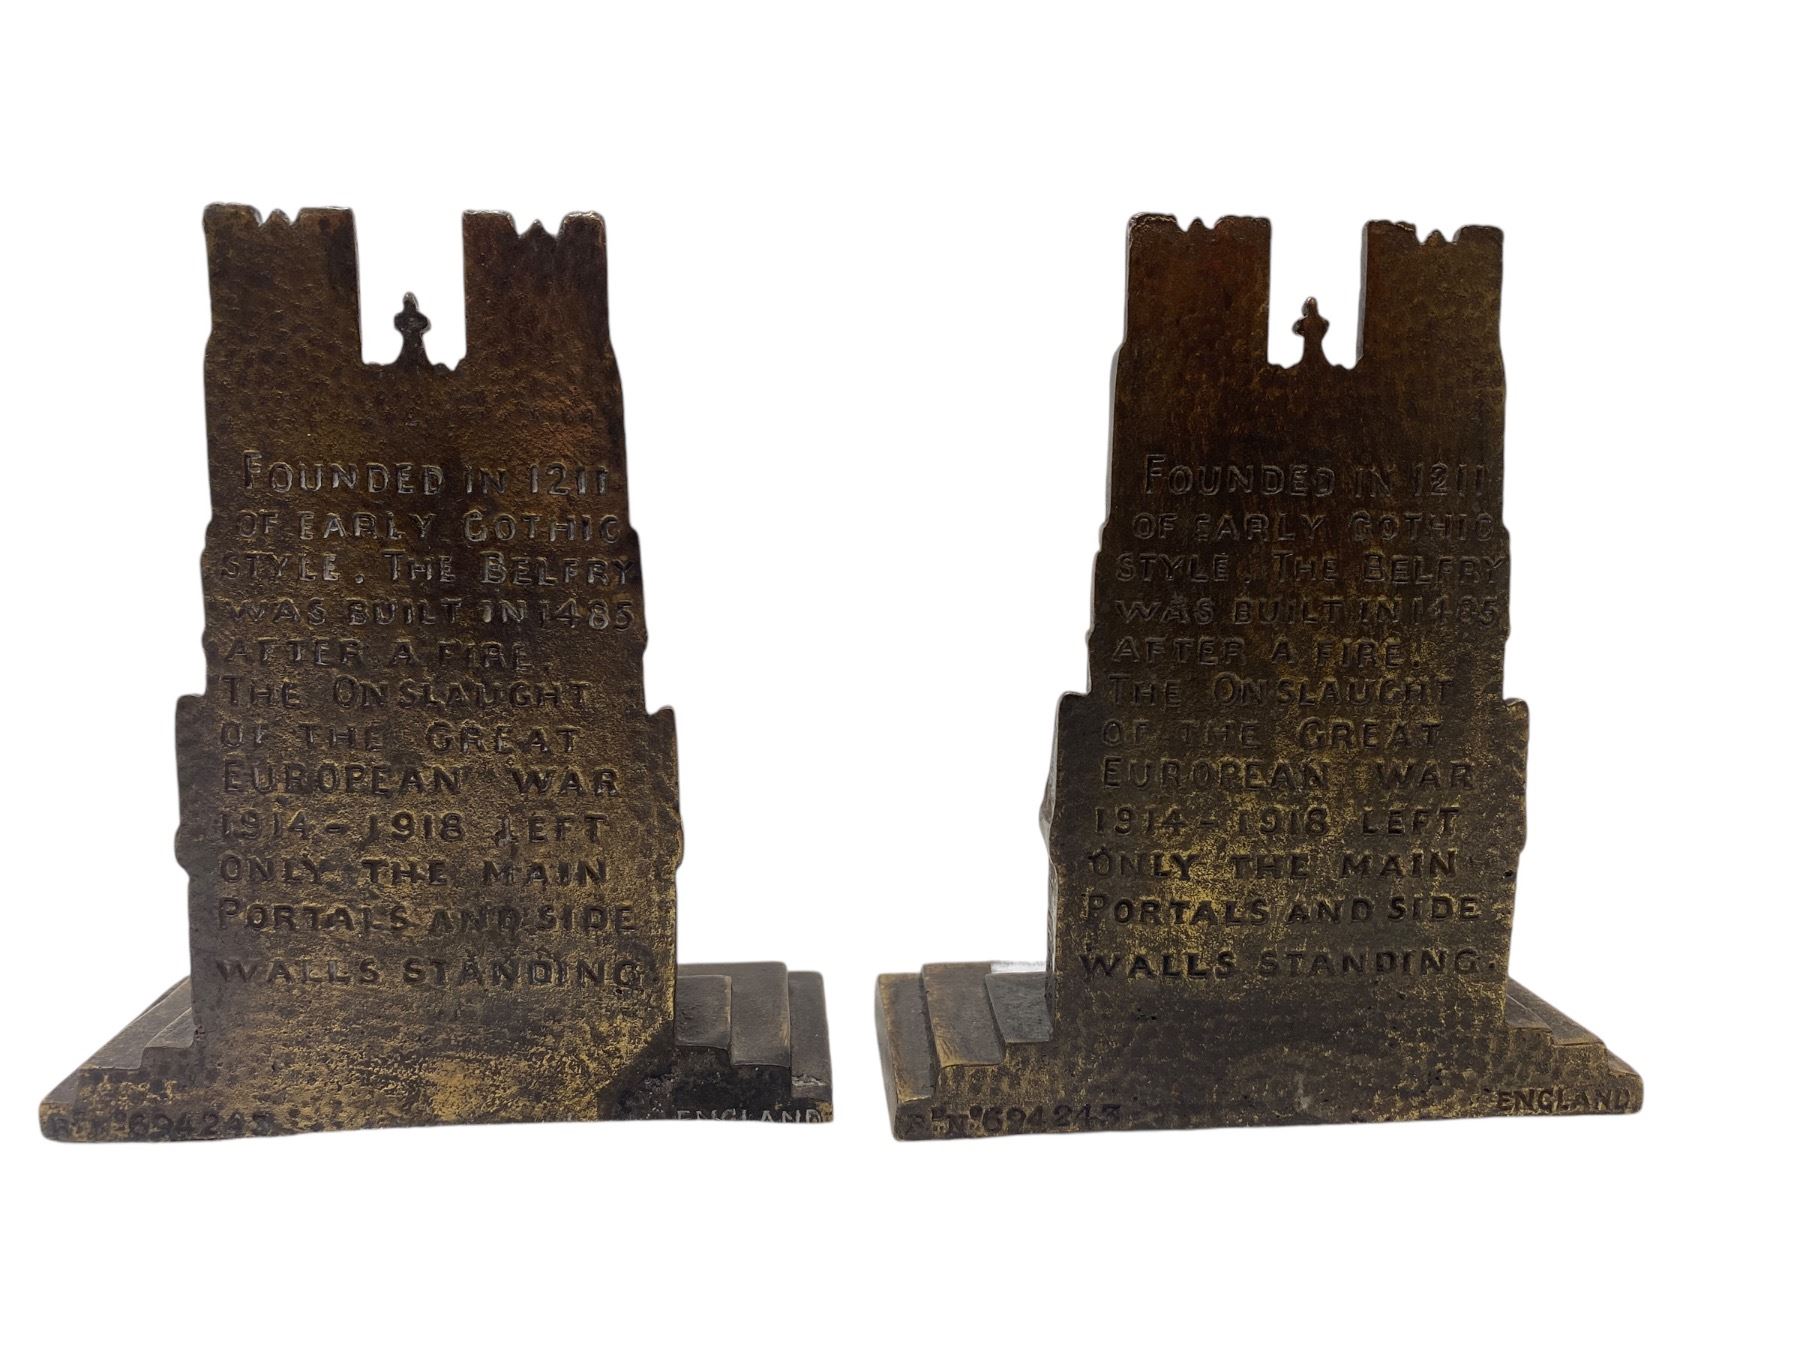 FOUNDED IN 1211
OF EARLY GOTHIC
STYLE. THE BELFRY
WAS BUILT IN 1485
AFTER A FIRE.
THE ONSLAUGHT
OF THE GREAT
EUROPEAN WAR
1914-1918 LEFT
ONLY THE MAIN
PORTALS AND SIDE
WALLS STANDING.
Rd No 694243
ENGLAND
FOUNDED IN 1211
OF EARLY GOTHIC
STYLE. THE BELFRY
WAS BUILT IN 1485
AFTER A FIRE.
THE ONSLAUGHT
OF THE GREAT
EUROPEAN WAR
1914-1918 LEFT
ONLY THE MAIN
PORTALS AND SIDE
WALLS STANDING.
Rd No 694243
ENGLAND